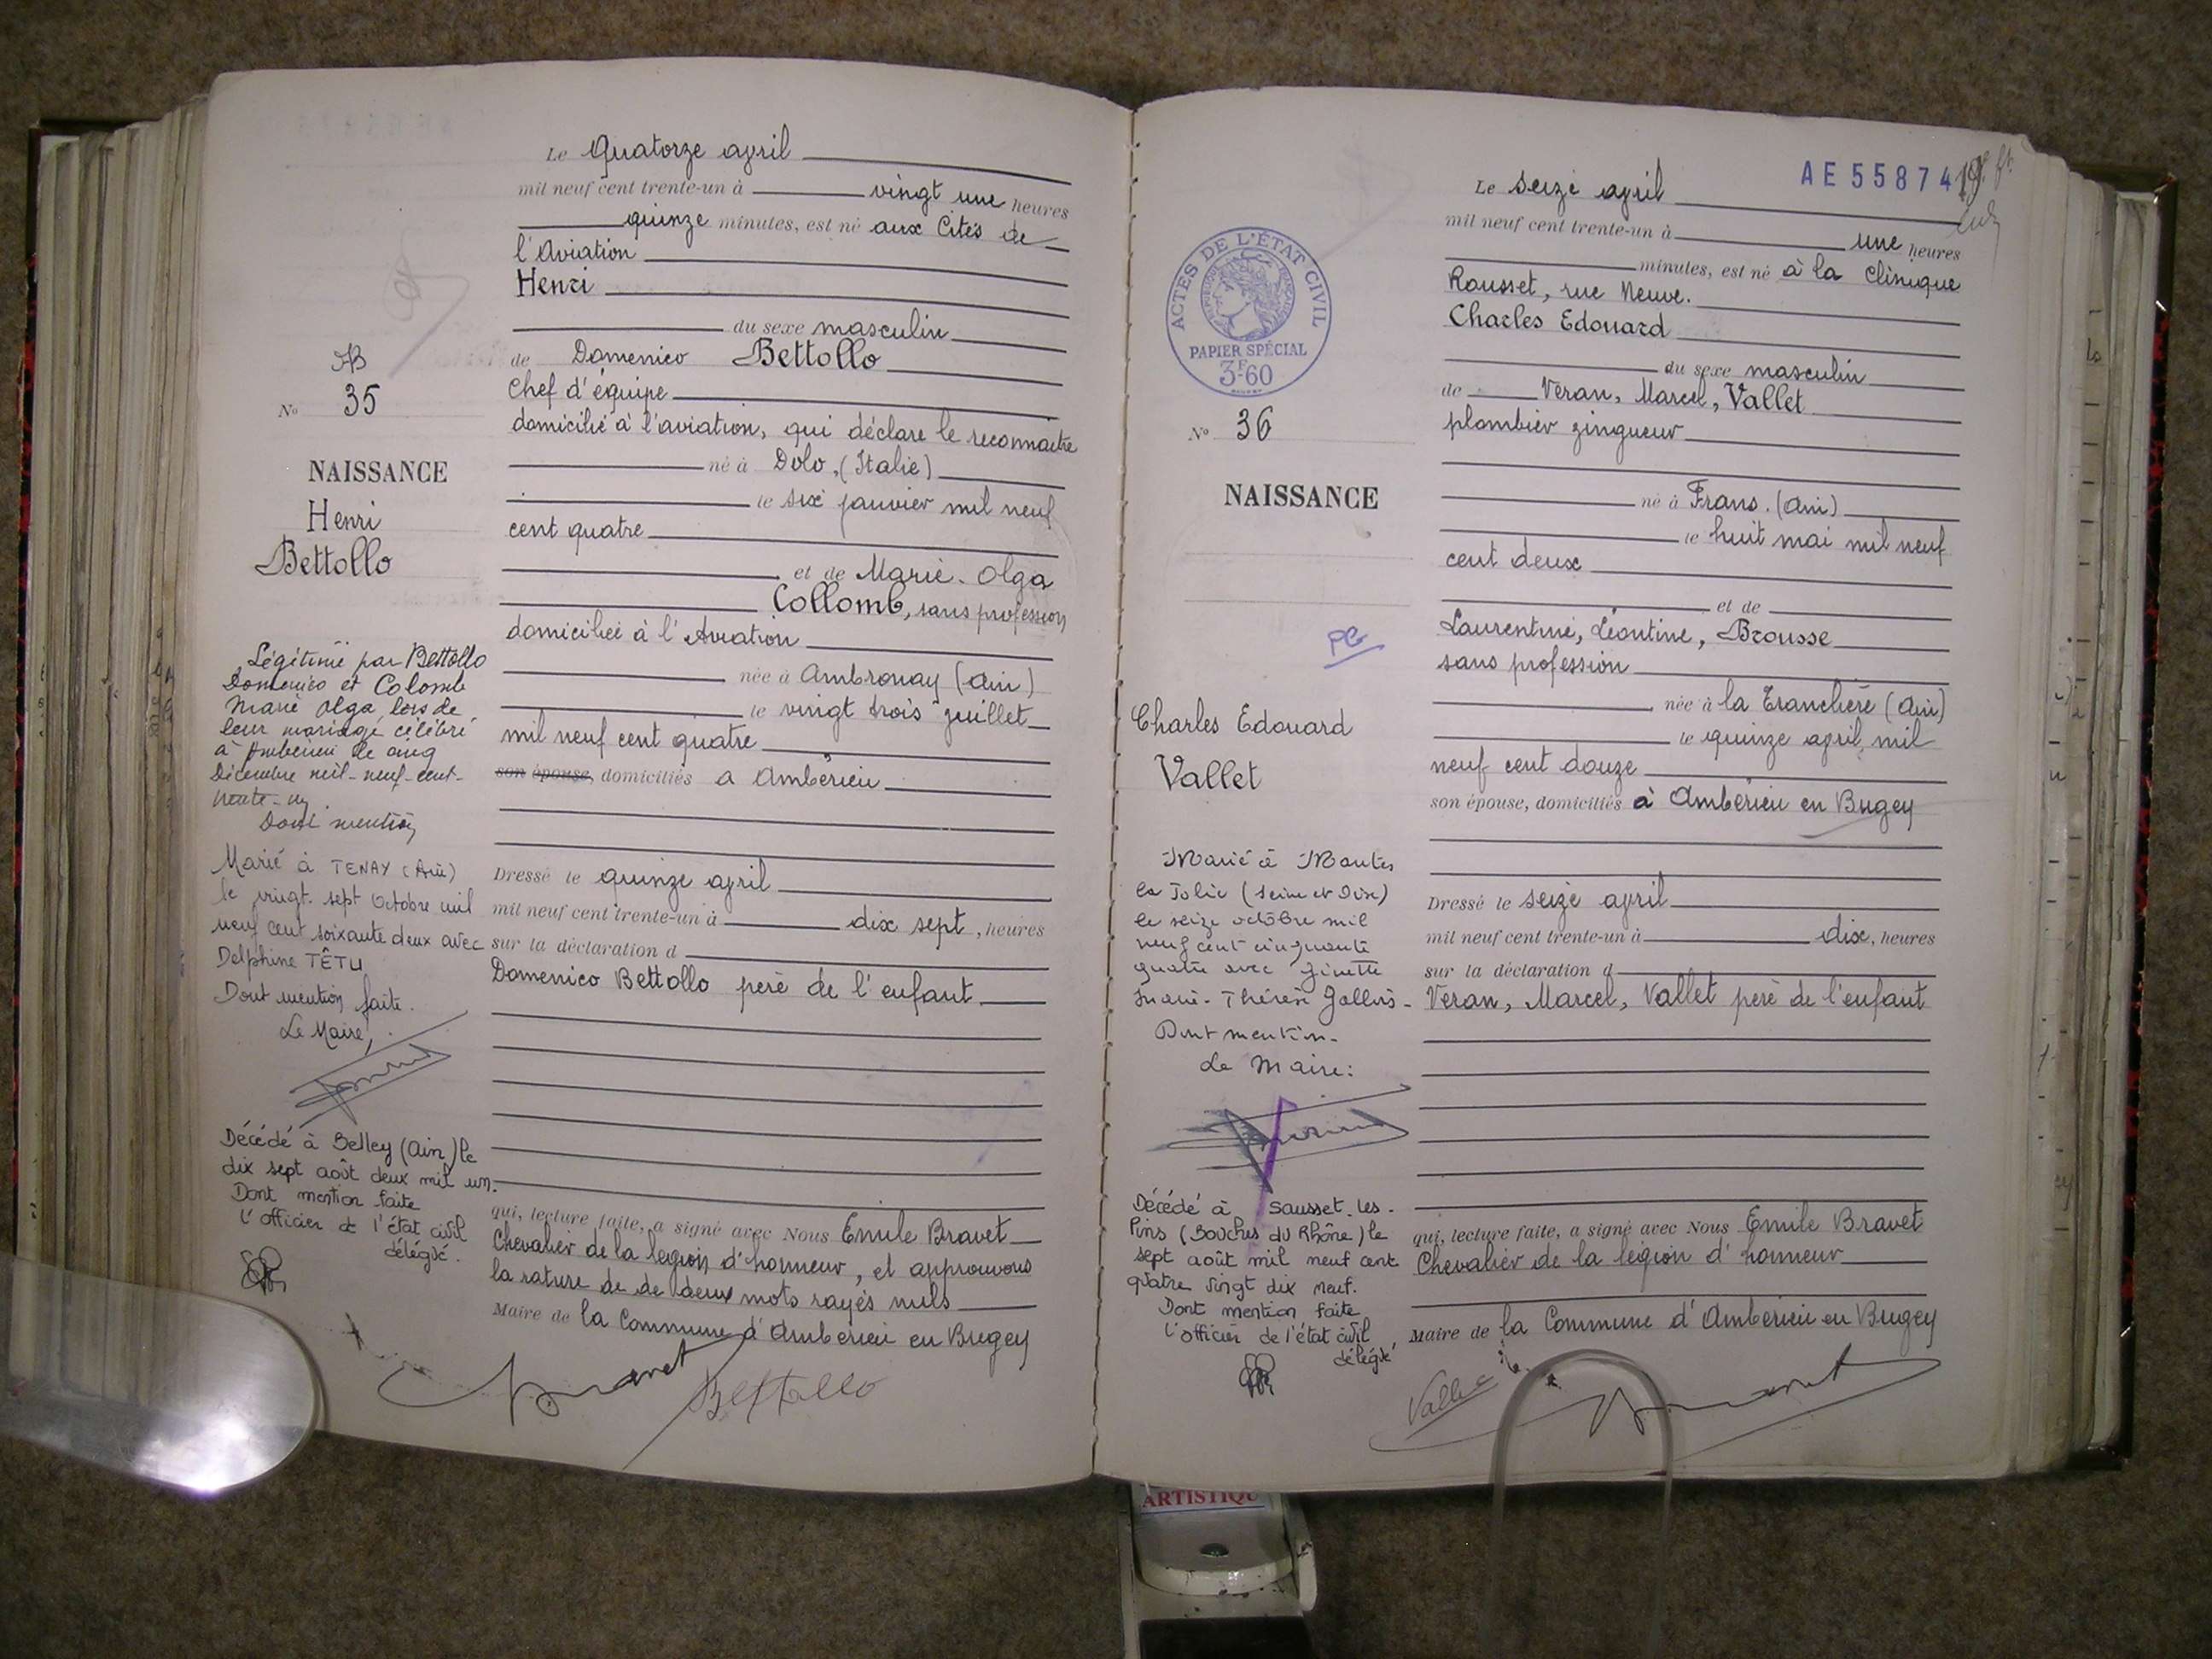 Le quatorze april
mil neuf cent trente-un à vingt une heures
quinze minutes, est né aux Cités de
l'Aviation
Henri
du sexe masculin
de Domenico Bettollo
Chef d'équipe
domicilié à l'aviation, qui déclare le reconnaitre
né à Dolo, (Italie)
le six janvier mil neuf
cent quatre
et de Marie-Olga
Collomb, sans profession
domiciliée à l'Aviation
née à Ambronay (Ain)
le vingt trois juillet
mil neuf cent quatre
son épouse, domiciliés a Ambérieu
Dressé le quinze april
mil neuf cent trente-un à dix sept, heures
sur la déclaration d
Domenico Bettollo père de l'enfant
qui, lecture faite, a signé avec Nous Emile Bravet
Chevalier de la legion d'honneur, et approuvons
la rature de de deux mots rayés nuls
Maire de la Commune d'Ambérieu en Bugey
Bravet
Bettollo
AB
No 35
NAISSANCE
Henri
Bettollo
Légitimé par Bettollo
Domenico et Colomb
Marie Olga, lors de
leur mariage célébré
à Ambérieu le cinq
Décembre mil-neuf-cent-
trente-un.
Dont mention
Marié à TENAY (Ain)
le vingt-sept Octobre mil
neuf cent soixante deux avec
Delphine TÊTU
Dont mention faite.
Le Maire,
Décédé à Belley (Ain) le
dix sept août deux mil un.
Dont mention faite
L'officier de l'état civil
délégué.
AE 55874
ACTES DE L'ÉTAT CIVIL
PAPIER SPÉCIAL
3F60
Le seize april
mil neuf cent trente-un à une heures
minutes, est né à la Clinique
Rousset, rue Neuve.
Charles Edouard
du sexe masculin
de Véran, Marcel, Vallet
plombier zingueur
né à Frans. (Ain)
le huit mai mil neuf
cent deux
et de
Laurentine, Léontine, Brousse
sans profession
née à la Tranchère (Ain)
le quinze april, mil
neuf cent douze
son épouse, domiciliés à Ambérieu en Bugey
Dressé le seize april
mil neuf cent trente-un à dix, heures
sur la déclaration d
Véran, Marcel, Vallet père de l'enfant
qui, lecture faite, a signé avec Nous Emile Bravet
Chevalier de la légion d'honneur
Maire de la Commune d'Ambérieu en Bugey
Vallet
Bravet
No 36
NAISSANCE
Charles Edouard
Vallet
Marié à Mantes
la Jolie (Seine et Oise)
le seize octobre mil
neuf cent cinquante
quatre avec Ginette
Marie-Thérèse
Dont mention.
Le Maire:
Décédé à Sausset-les-
Pins (Bouches du Rhône) le
sept août mil neuf cent
quatre vingt dix neuf.
Dont mention faite
L'officier de l'état civil
délégué
ARTISTIQU